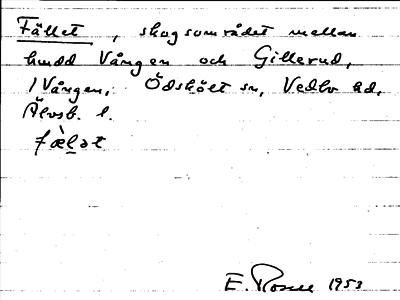 Fället, skogsområdet mellan
hmdd Vången och Gillerud,
1 Vången, Ödskölt sn, Vedbo hd,
Älvsb. l.
fæ̀lət
E. Rosell 1953